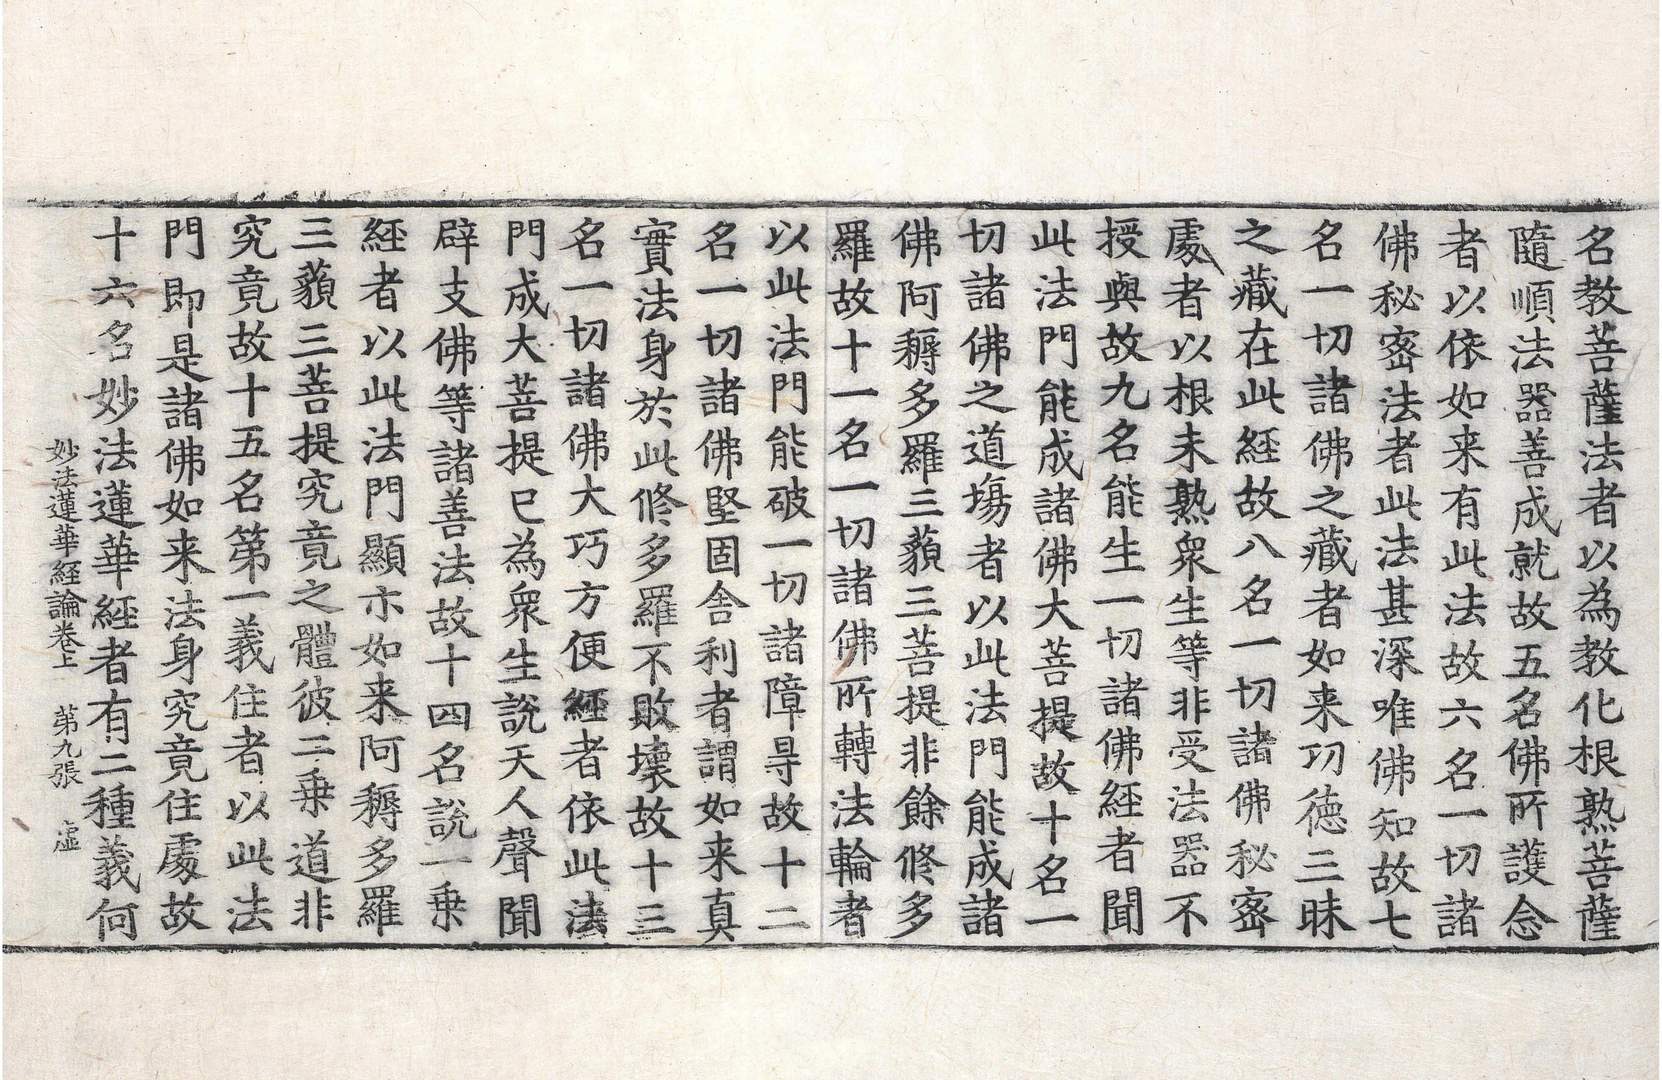 名教菩薩法者以為教化根熟菩薩
隨順法器善成就故五名佛所護念
者以依如来有此法故六名一切諸
佛秘密法者此法甚深唯佛知故七
名一切諸佛之藏者如来功德三昧
之藏在此經故八名一切諸佛秘密
處者以根未熟衆生等非受法器不
授與故九名能生一切諸佛經者聞
此法門能成諸佛大菩提故十名一
切諸佛之道場者以此法門能成諸
佛阿耨多羅三藐三菩提非餘修多
羅故十一名一切諸佛所轉法輪者
以此法門能破一切諸障㝵故十二
名一切諸佛堅固舍利者謂如来真
實法身於此修多羅不敗壞故十三
名一切諸佛大巧方便經者依此法
門成大菩提已為衆生說天人聲聞
辟支佛等諸善法故十四名說一乗
經者以此法門顯示如来阿耨多羅
三藐三菩提究竟之體彼二乗道非
究竟故十五名第一義住者以此法
門即是諸佛如来法身究竟住處故
十六名妙法蓮華經者有二種義何
妙法蓮華經論卷上 第九張 虛